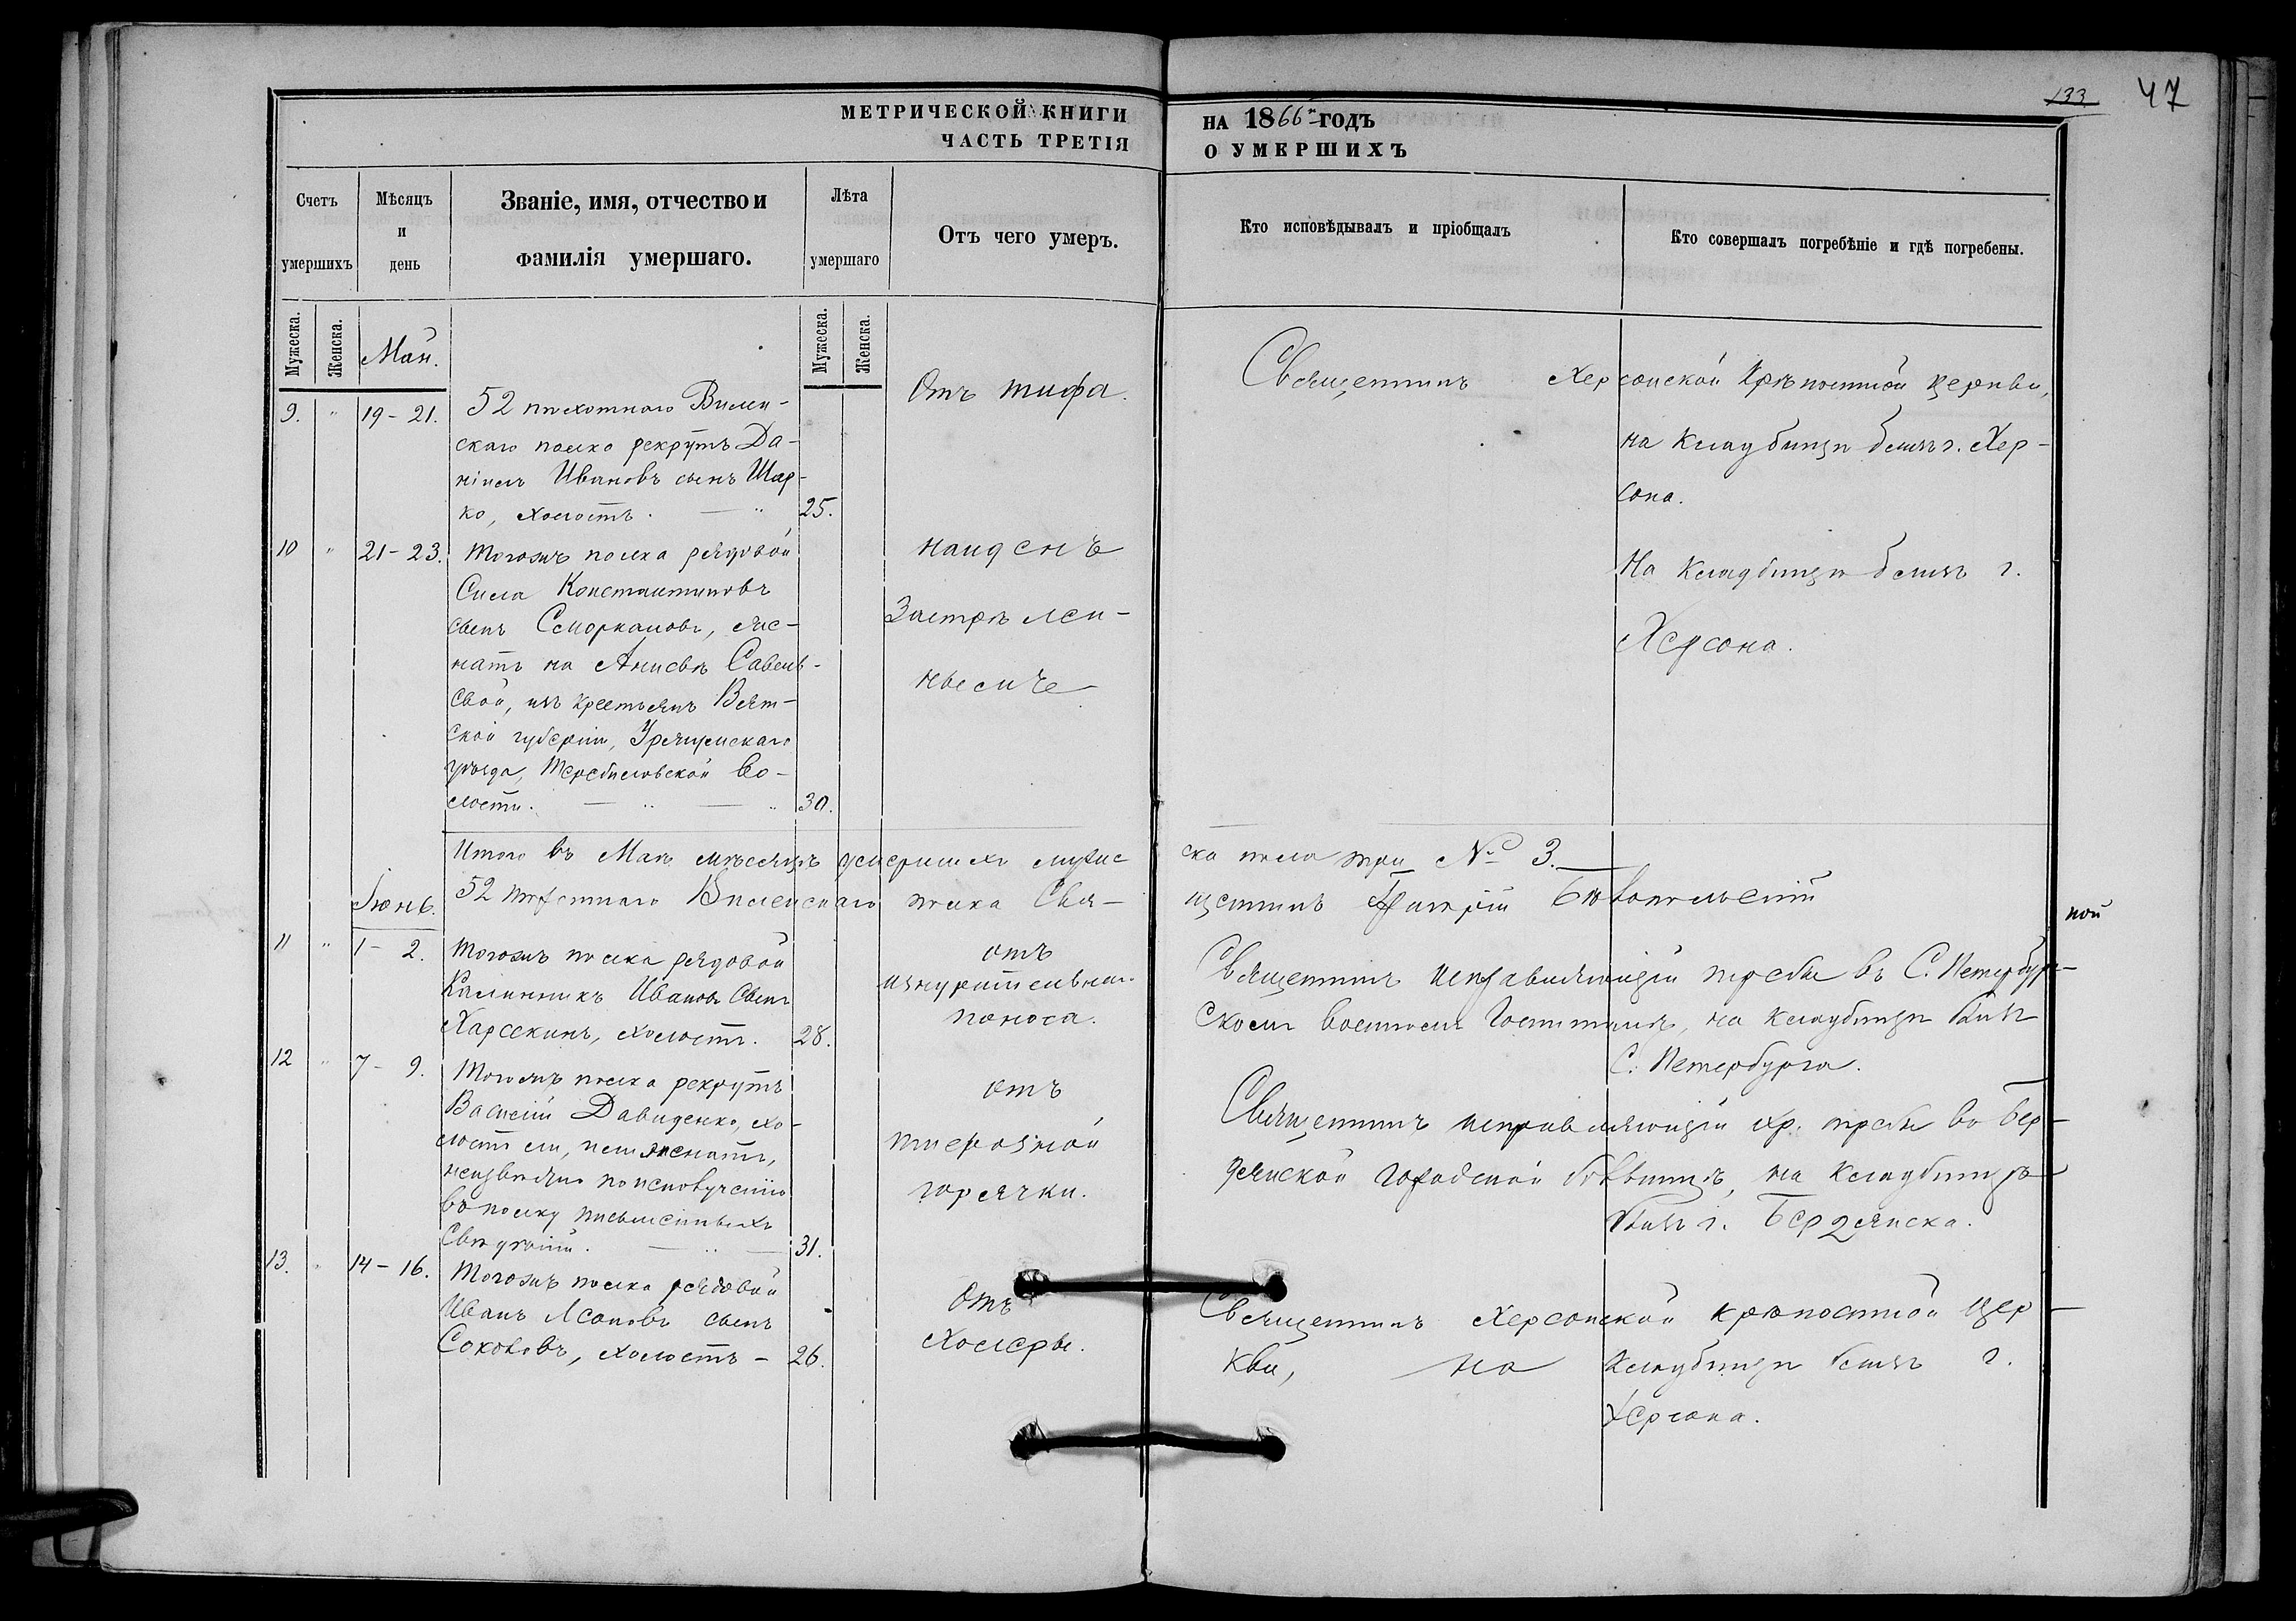 133
47
МЕТРИЧЕСКОЙ КНИГИ НА 1866 ГОДЪ
ЧАСТЬ ТРЕТІЯ О УМЕРШИХЪ
Счетъ умершихъ
Мѣсяцъ и день
Званіе, имя, отчество и фамилія умершаго.
Лѣта умершаго
Отъ чего умеръ.
Кто исповѣдывалъ и пріобщалъ
Кто совершалъ погребѣніе и гдѣ погребены.
Мужеска.
Женска.
Мужеска.
Женска.
Май.
9. " 19-21.
52 пѣхотнаго Вилен-
скаго полка рекрутъ Да-
ніилъ Ивановъ сынъ Шар-
ко, холостъ. 25.
Отъ тифа.
Священникъ Херсонской Крѣпостной церкви,
на кладбищѣ близъ г. Хер-
сона.
10 " 21-23.
Тогожъ полка рядовой
Сила Константиновъ
сынъ Сморкаловъ, же-
натъ на Анисьѣ Савель-
евой, изъ крестьянъ Вят-
ской губерніи,
уѣзда, во-
лости. 30.
найденъ
Застрѣлен-
На кладбищѣ близъ г.
Херсона.
Итого въ Маѣ мѣсяцѣ умершихъ мужес-
ка пола три № 3.
52 пѣхотнаго Виленскаго полка Свя-
щенникъ
Іюнь.
11 " 1- 2.
Тогожъ полка рядовой
Калинникъ Ивановъ сынъ
Харсекинъ, холостъ. 28.
отъ
изнурительнаго
поноса.
Священникъ исправляющій требы въ С. Петербур-
скомъ военномъ госпиталѣ, на кладбищѣ близъ
С. Петербурга.
12 " 7- 9.
Тогожъ полка рекрутъ
Василій Давиденко, хо-
лостъ ли, или женатъ,
неизвѣстно по неполученію
въ полку письменныхъ
свѣдѣній. 31.
отъ
тифозной
горячки.
Священникъ исправляющій хр. требы въ Бер-
дянской городской больницѣ, на кладбищѣ
близъ г. Бердянска.
13. " 14-16.
Тогожъ полка рядовой
Иванъ сынъ
Соколовъ, холостъ - 26.
Отъ
холеры.
Священникъ Херсонской крѣпостной цер-
кви, на кладбищѣ близъ г.
Херсона.